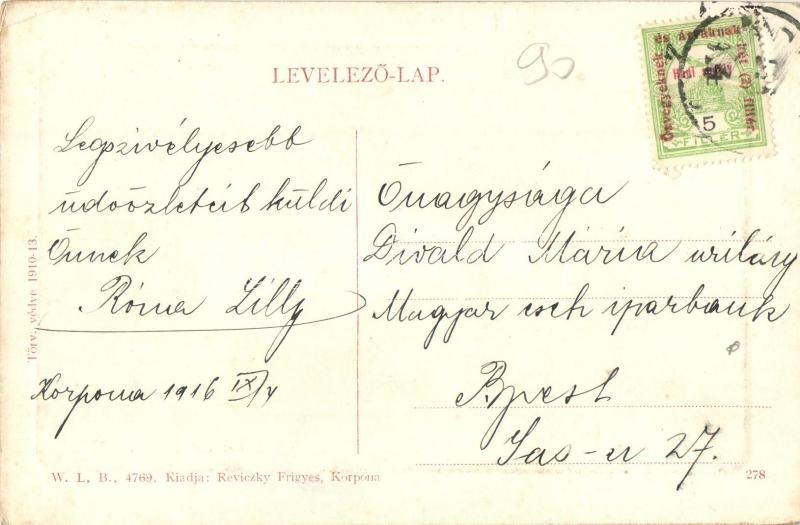 LEVELEZŐ-LAP.
90
Özvegyeknek és Árváknak két (2) fillér
Hadi segély
5
FILLÉR
Legszivélyesebb
üdvözleteit küldi
Önnek
Róma Lilly
Korpona 1916 IX/4
Őnagysága
Divald Mária urilány
Magyar cseh iparbank
Bpest
Sas-u 27.
Törv. védve 1910-13.
W. L. B., 4769. Kiadja: Reviczky Frigyes, Korpona
278